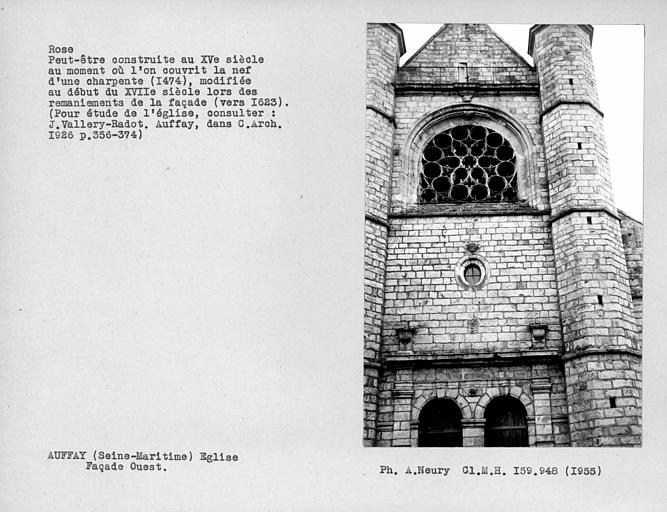 Rose
Peut-être construite au XVe siècle
au moment où l'on couvrit la nef
d'une charpente (I474), modifiée
au début du XVIIe siècle lors des
remaniements de la façade (vers I623).
(Pour étude de l'église, consulter :
J.Vallery-Radot. Auffay, dans C.Arch.
I926 p.356-374)
AUFFAY (Seine-Maritime) Eglise
Façade Ouest.
Ph. A.Neury Cl.M.H. I59.948 (I955)